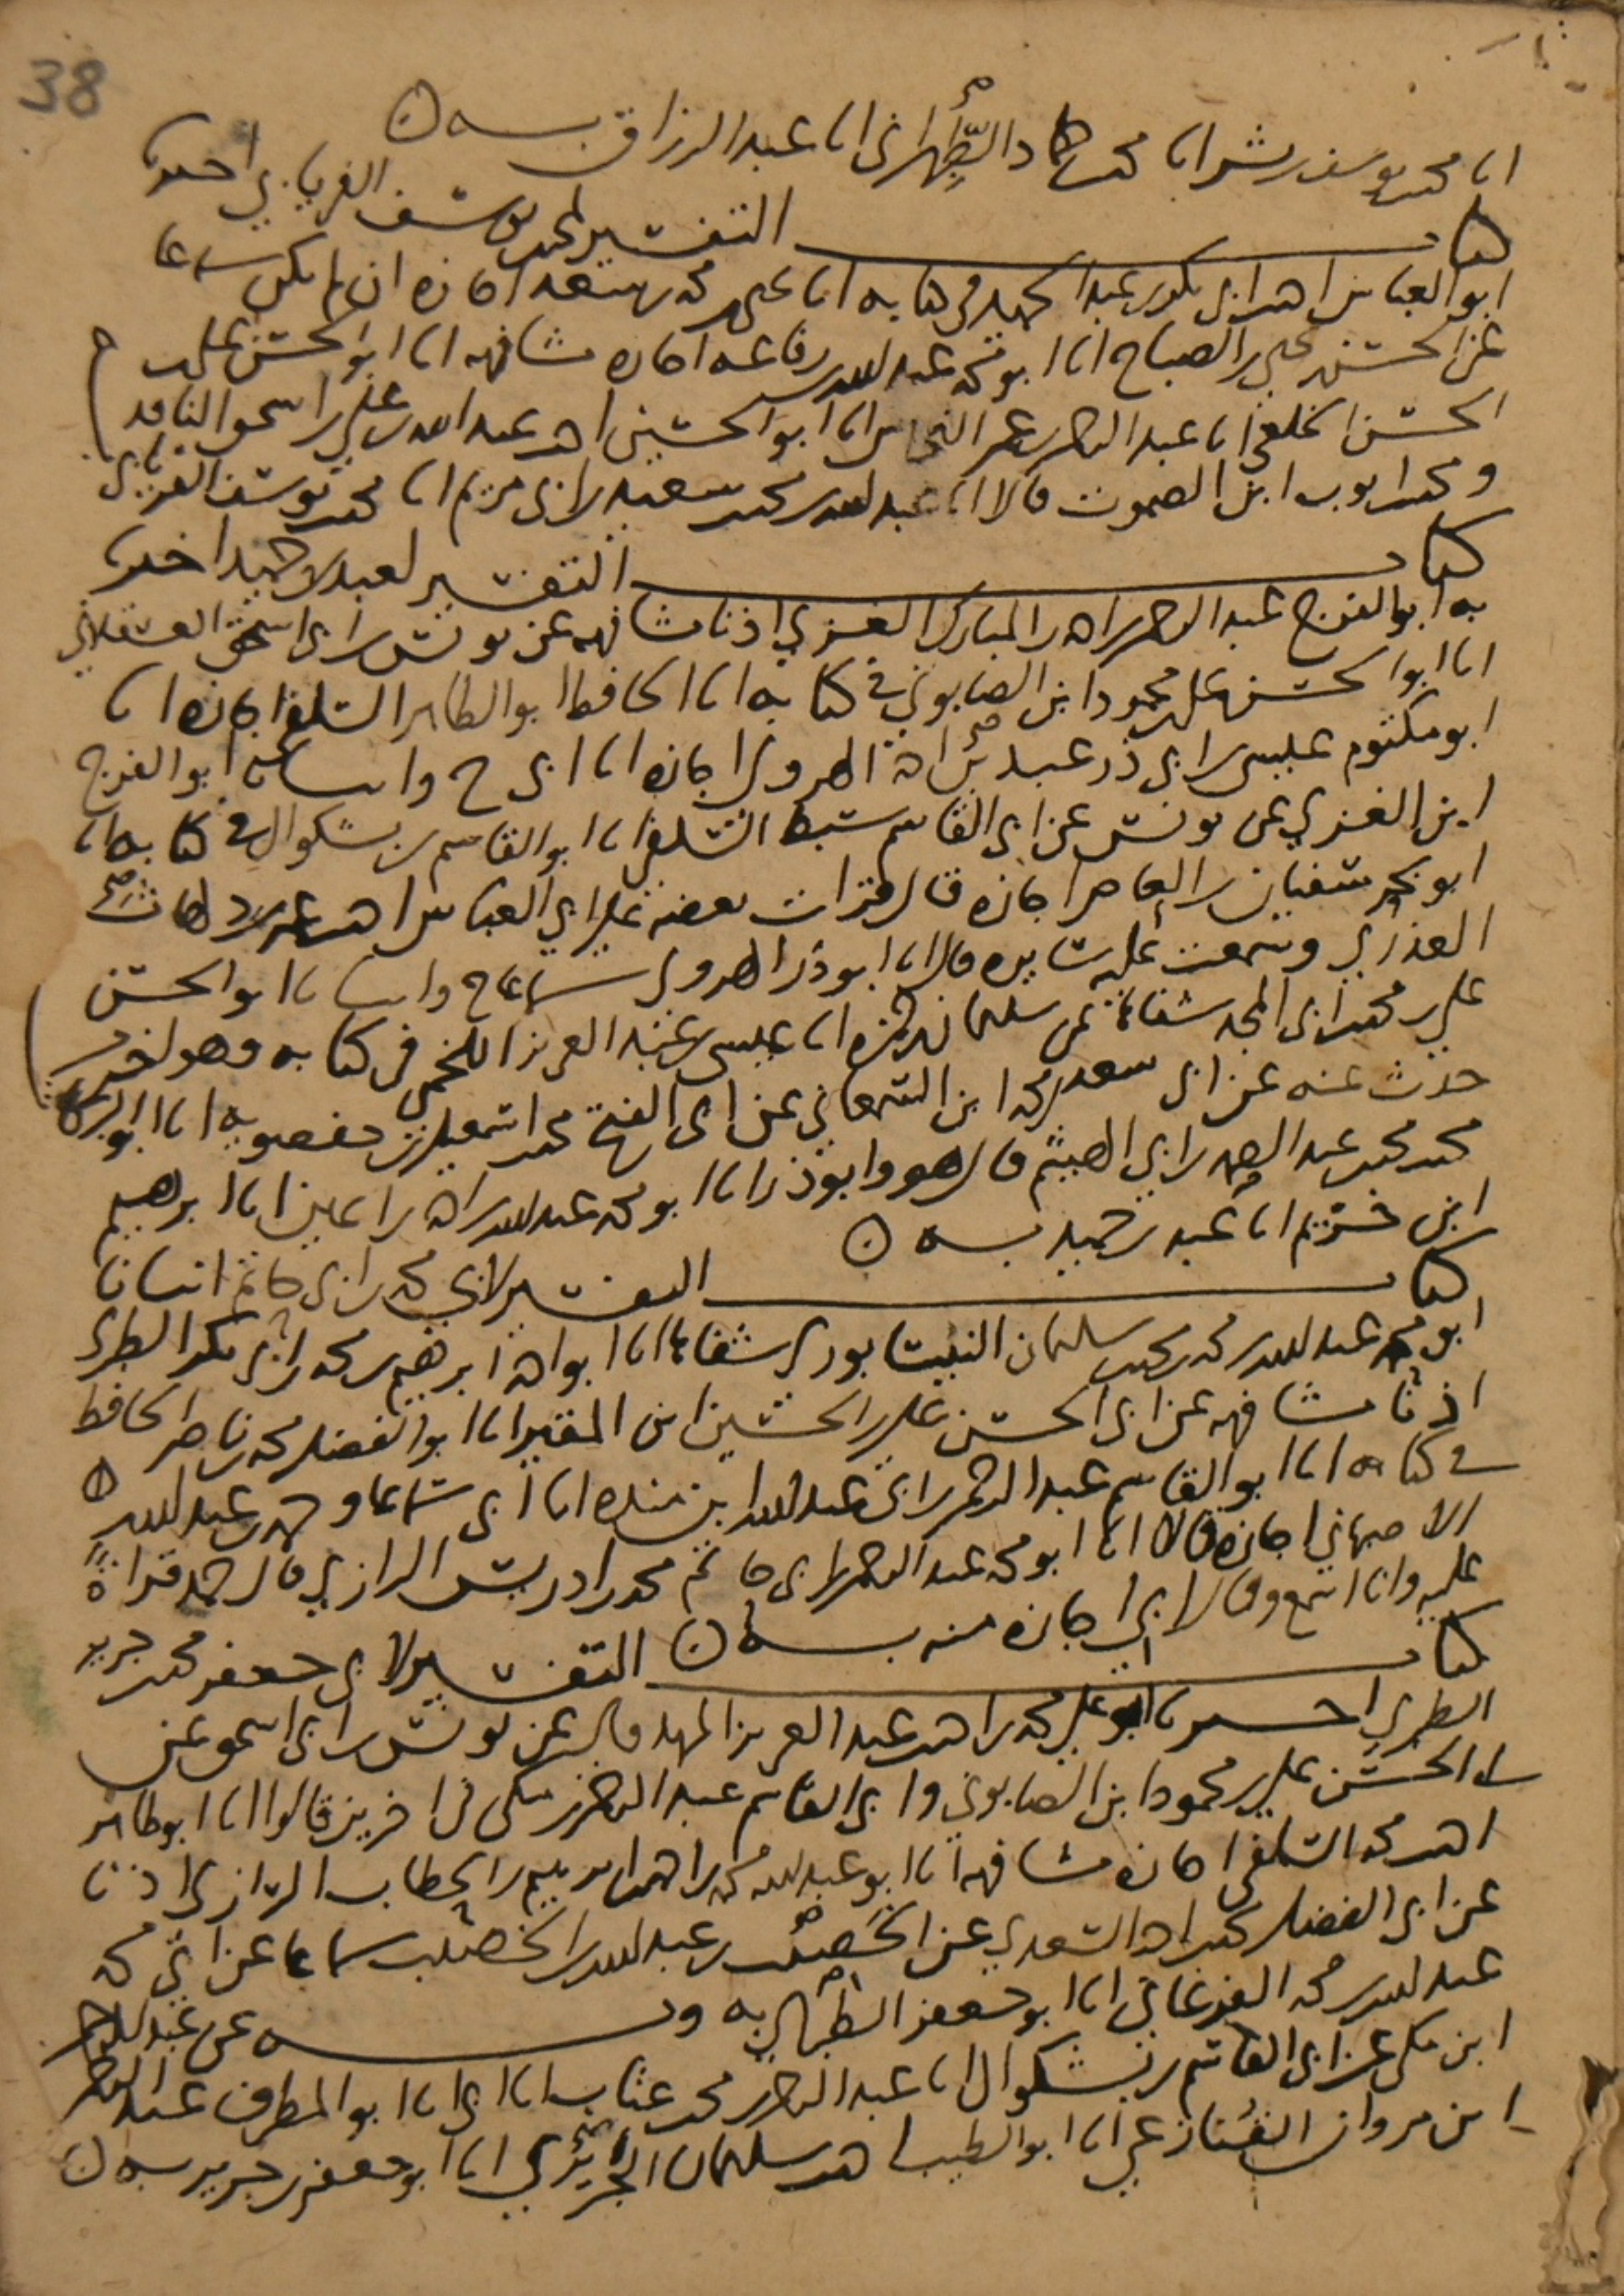 38
انا محمد بن يوسف بن بشر انا محمد بن حماد الطِّهراني انا عبد الرزاق به
كتاب التفسير لمحمد بن يوسف الفريابي اخبرنا
ابو العباس احمد بن ابي بكر بن عبد الحميد في كتابه انا يحيى بن محمد بن سعد اجازة ان لم يكن سماعا
عن الحسن بن يحيى بن الصباح انا ابو محمد عبد الله بن رفاعة اجازه مشافهه انا ابو الحسن علي بن
الحسن الخلعي انا عبد الرحمن بن عمر النحاس انا ابو الحسين احمد بن عبد الله بن علي بن اسحق الناقد
ومحمد بن ايوب ابن الصموت قالا انا عبد الله بن محمد بن سعيد بن ابي مريم انا محمد بن يوسف الفريابي
كتاب التفسير لعبد بن حميد اخبرنا
به ابو الفرج عبد الرحمن بن احمد بن المبارك الغزي اذنا مشافهه عن يونس بن ابي اسحق العسقلاني
انا ابو الحسن علي بن محمود ابن الصابوني في كتابه انا الحافظ ابو الطاهر السلفي اجازه انا
ابو مكتوم عيسى بن ابي ذر عبد بن احمد الهروي اجازه انا ابي ح وانبانا ابو الفرج
ابن الغزي عن يونس عن ابي القاسم سبط السلفي انا ابو القاسم بن بشكوال في كتابه انا
ابو بحر سفيان بن العاص اجازه قال قرات بعضه على ابي العباس احمد بن عمر بن دلهاث
العذري وسمعت عليه سايره قال انا ابو ذر الهروي سماعا ح وانبانا ابو الحسن
علي بن محمد بن ابي المجد شفاها عن سليمان بن حمزه انا عيسى بن عبد العزيز اللخمي في كتابه وهو اخر من
حدث عنه عن ابي سعد بن محمد ابن السمعاني عن ابي الفتح محمد بن اسمعيل بن حفصويه انا ابو
محمد بن محمد بن عبد الصمد بن ابي الهيثم قال هو وابو ذر انا ابو محمد عبد الله بن احمد بن اعين انا ابرهيم
ابن خزيم انا عبد بن حميد به
كتاب التفسير لابي محمد بن ابي حاتم انبانا
ابو محمد عبد الله بن محمد بن محمد بن سليمان النيسابوري شفاها انا ابو احمد ابرهيم بن محمد بن ابي بكر الطبري
اذنا مشافهه عن ابي الحسن علي بن الحسين ابن المقير انا ابو الفضل محمد بن ناصر الحافظ
في كتابه انا ابو القاسم عبد الرحمن بن ابي عبد الله ابن منده انا ابي سماعا وحمد بن عبد الله
الاصبهاني اجازه قالا انا ابو محمد عبد الرحمن بن ابي حاتم محمد بن ادريس الرازي قال حمد قراةً
عليه وانا اسمع وقال ابي اجازه منه به
كتاب التفسير لابي جعفر محمد بن جرير
الطبري اخبرنا ابو علي محمد بن احمد بن عبد العزيز المهدوي عن يونس بن ابي اسحق عن
ابي الحسن علي بن محمود ابن الصابوني وابي القاسم عبد الرحمن بن مكي في اخرين قالوا انا ابو طاهر
احمد بن محمد السلفي اجازه مشافهه انا ابو عبد الله محمد بن احمد بن ابرهيم بن الحطاب الرازي اذنا
عن ابي الفضل محمد بن احمد السعدي عن الخَصيب بن عبد الله بن الخصيب سماعا عن ابي محمد
عبد الله بن محمد الفرغاني انا ابو جعفر الطبري به وبه عن عبد الرحمن
ابن مكي عن ابي القاسم بن بشكوال انا عبد الرحمن بن محمد بن عتاب انا ابي انا ابو المطرف عبد الرحمن
ابن مروان القُنازعي انا ابو الطيب احمد بن سليمان الجَريري انا ابو جعفر بن جرير به